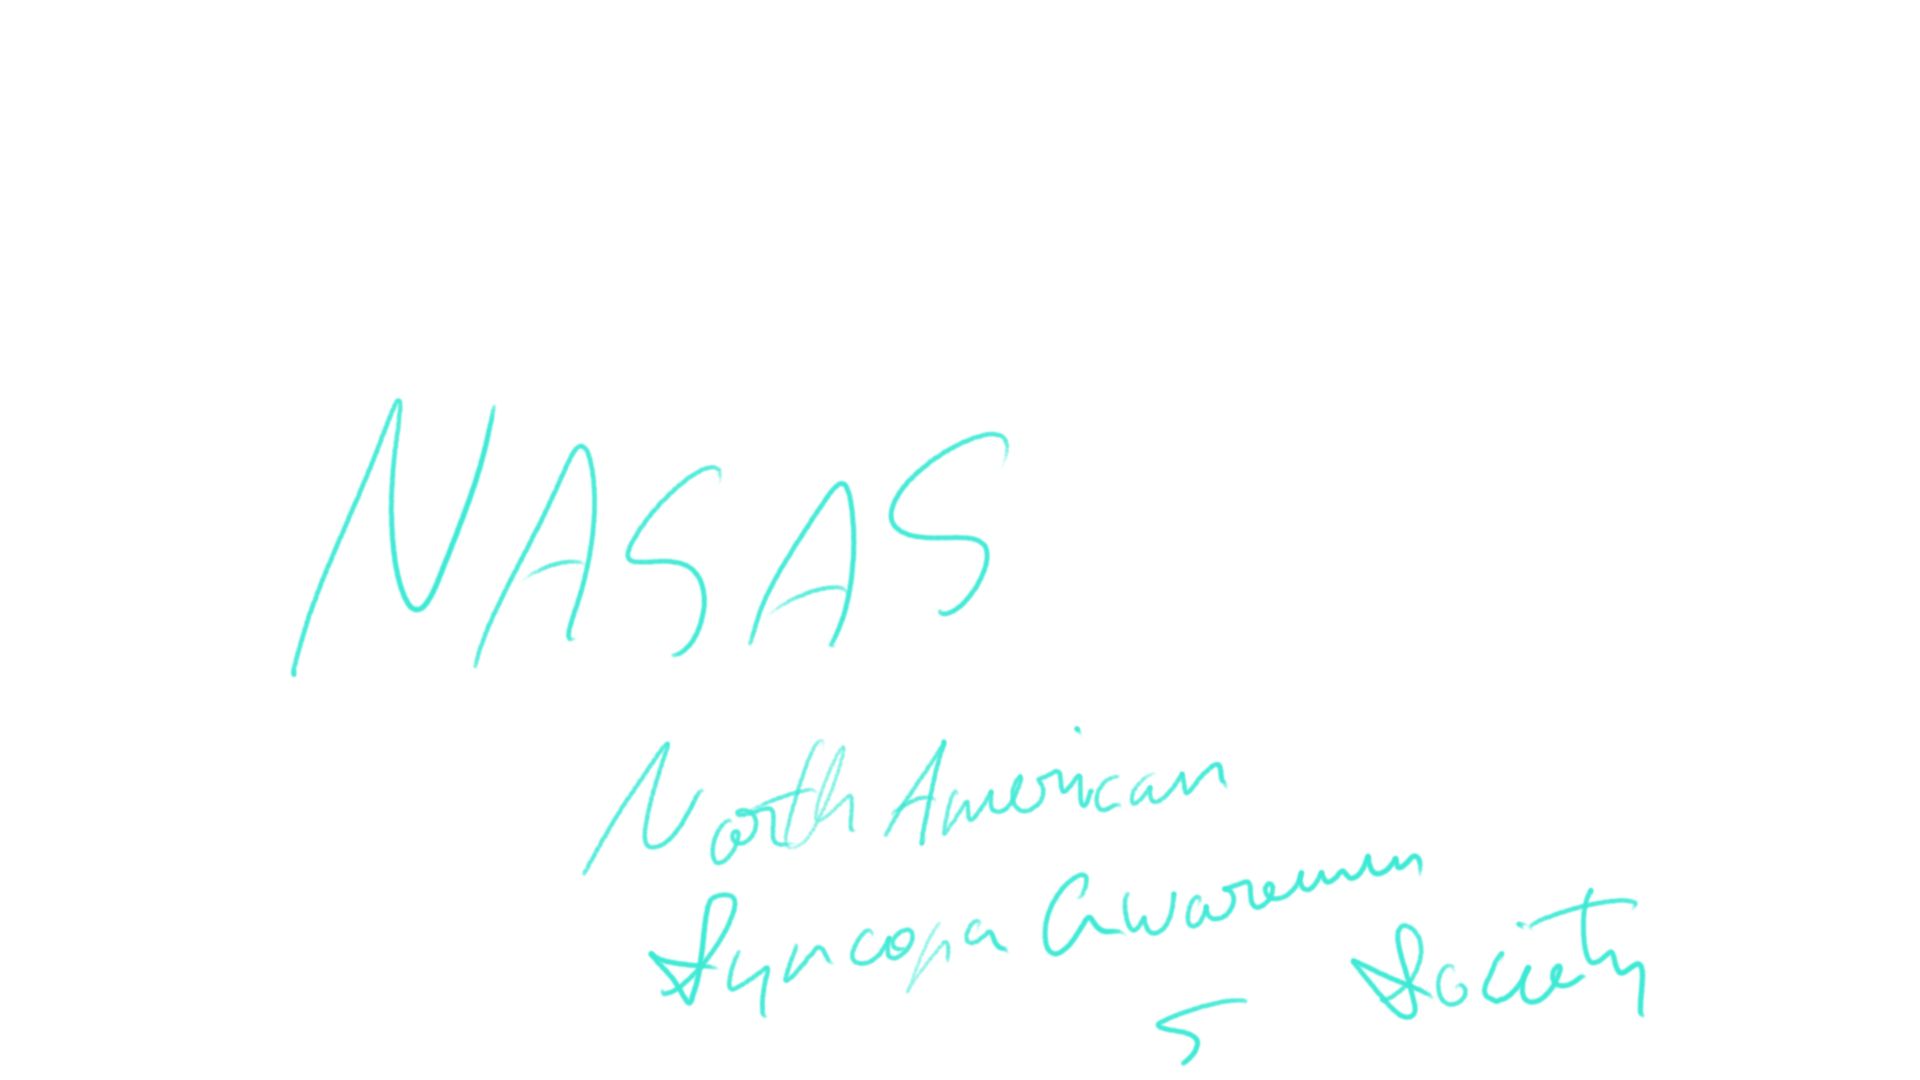 NASAS
North American
Syncopa Awareness
Society
5